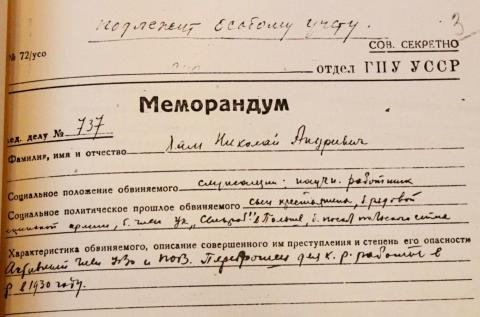 подлежит особому учету.
3
№ 72/усо
СОВ. СЕКРЕТНО
отдел ГПУ УССР
Меморандум
ед. делу № 737
Фамилия, имя и отчество Николай Андриевич
Социальное положение обвиняемого служащий: научн. работник
Социальное политическое прошлое обвиняемого сын крестьянина, б. рядовой
армии, б. член УК, в Польше, б. посол польского сейма
Характеристика обвиняемого, описание совершенного им преступления и степень его опасности
Активный член УВО и ПОВ. Переброшен для к. р. работы в
в 1930 году.